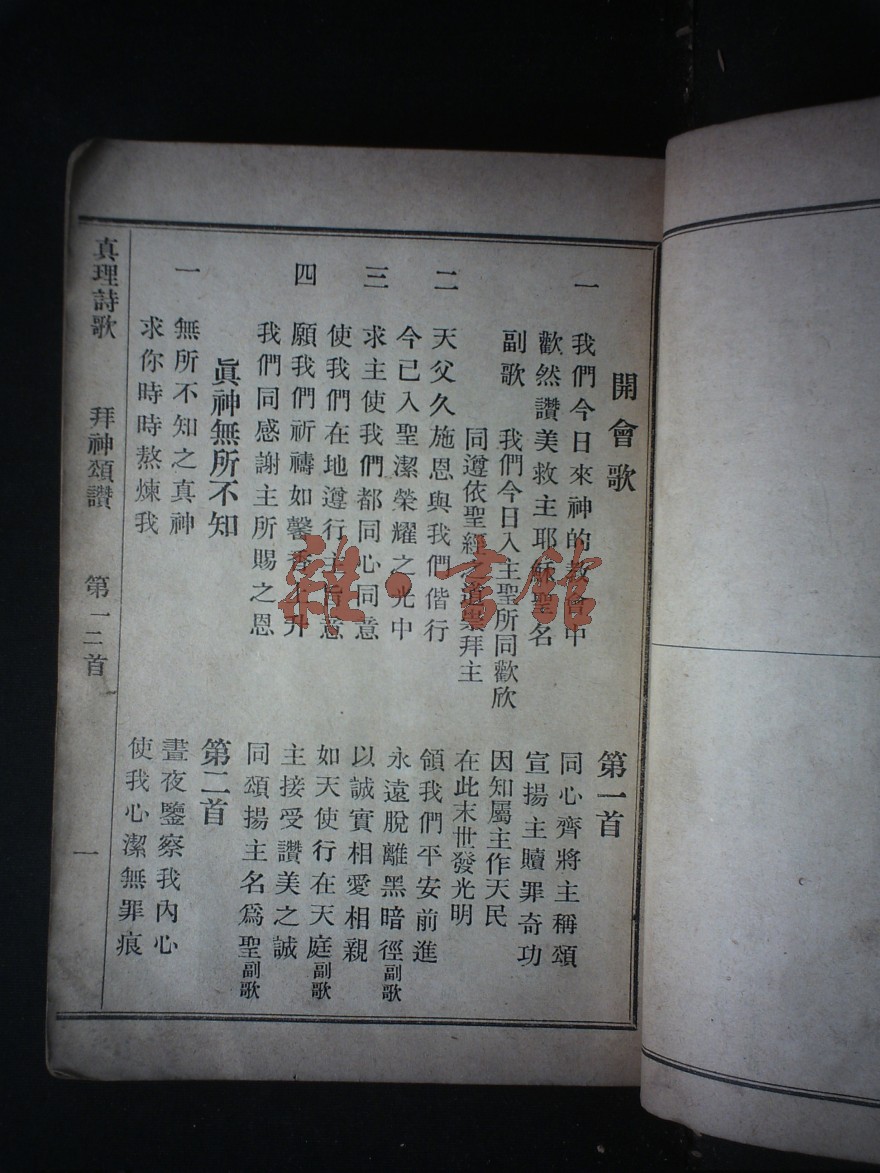 開會歌 第一首
一 我們今日來神的教會中 同心齊將主稱頌
歡然讚美救主耶穌聖名 宣揚主贖罪奇功
副歌 我們今日入主聖所同歡欣 因知屬主作天民
同遵依聖經之道崇拜主 在此末世發光明
二 天父久施恩與我們偕行 領我們平安前進
今已入聖潔榮耀之光中 永遠脫離黑暗徑副歌
三 求主使我們都同心同意 以誠實相愛相親
使我們在地遵行主旨意 如天使行在天庭副歌
四 願我們祈禱如馨香上升 主接受讚美之誠
我們同感謝主所賜之恩 同頌揚主名爲聖副歌
眞神無所不知 第二首
一 無所不知之真神 晝夜鑒察我內心
求你時時熬煉我 使我心潔無罪痕
真理詩歌 拜神頌讚 第一二首 一
雜·書館